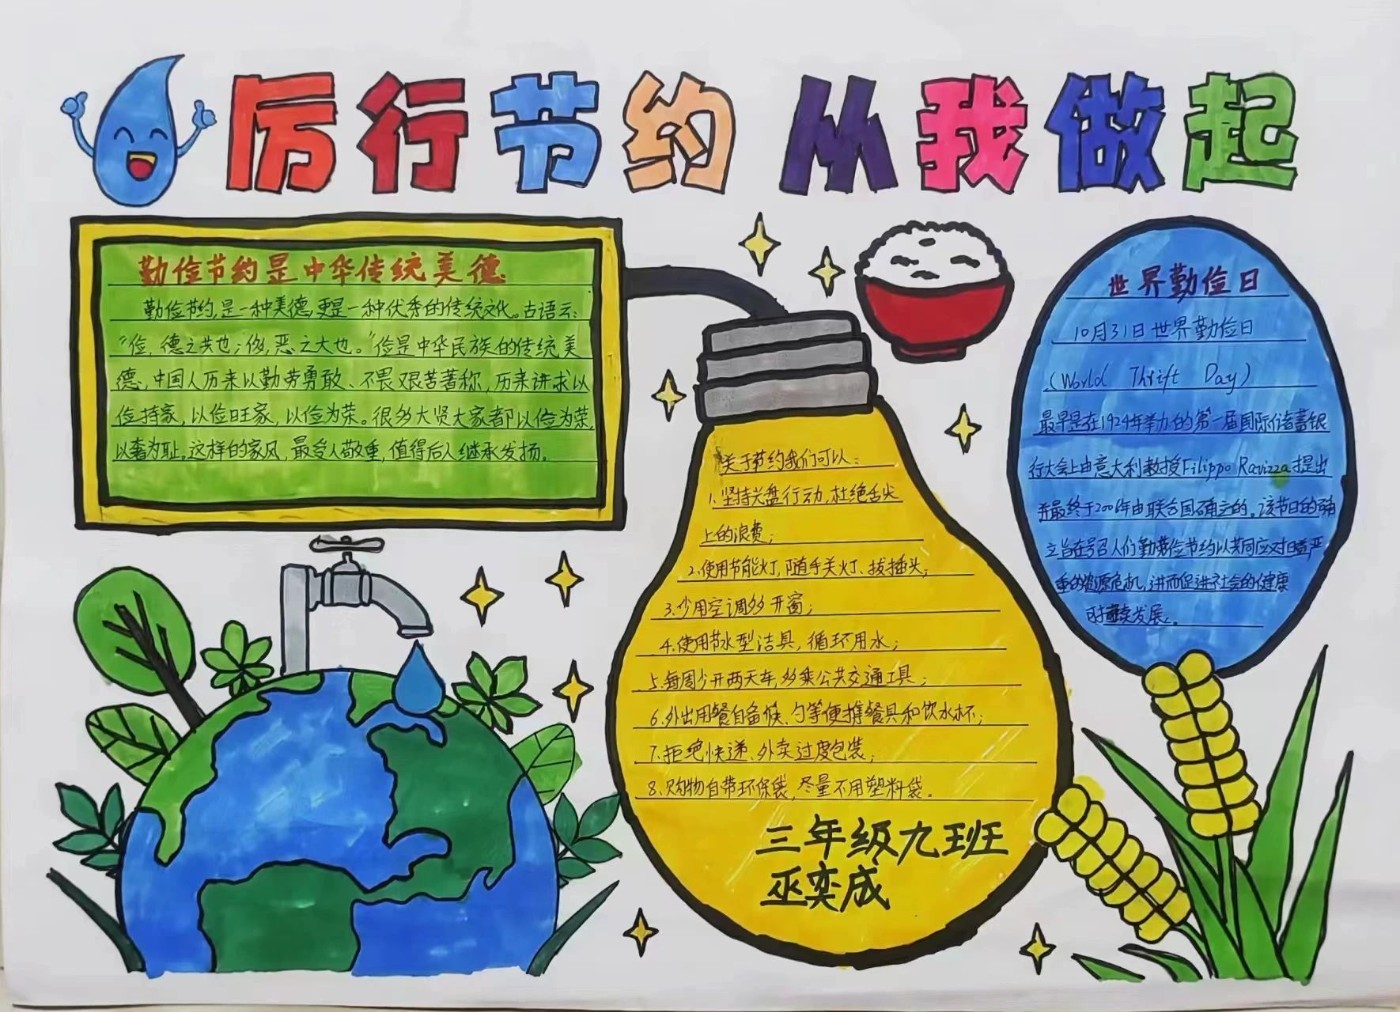 厉行节约 从我做起
勤俭节约是中华传统美德
勤俭节约,是一种美德,更是一种优秀的传统文化。古语云:
“俭,德之共也;侈,恶之大也。”俭是中华民族的传统美
德,中国人历来以勤劳勇敢、不畏艰苦著称,历来讲求以
俭持家,以俭旺家,以俭为荣。很多大贤大家者都以俭为荣,
以奢为耻,这样的家风,最令人敬重,值得后人继承发扬。
关于节约我们可以:
1.坚持光盘行动,杜绝舌尖
上的浪费;
2.使用节能灯,随手关灯、拔插头;
3.少用空调多开窗;
4.使用节水型洁具,循环用水;
5.每周少开两天车,多乘公共交通工具;
6.外出用餐自备筷、勺等便携餐具和饮水杯;
7.拒绝快递、外卖过度包装;
8.购物自带环保袋,尽量不用塑料袋。
三年级九班
巫奕成
世界勤俭日
10月31日世界勤俭日
(World Thrift Day)
最早是在1924年举办的第一届国际储蓄银
行大会上由意大利教授Filippo Ravizza提出
并最终于2006年由联合国确立的。该节日的确
立旨在号召人们勤劳俭节约以共同应对日益严
重的能源危机,进而促进社会的健康
可持续发展。